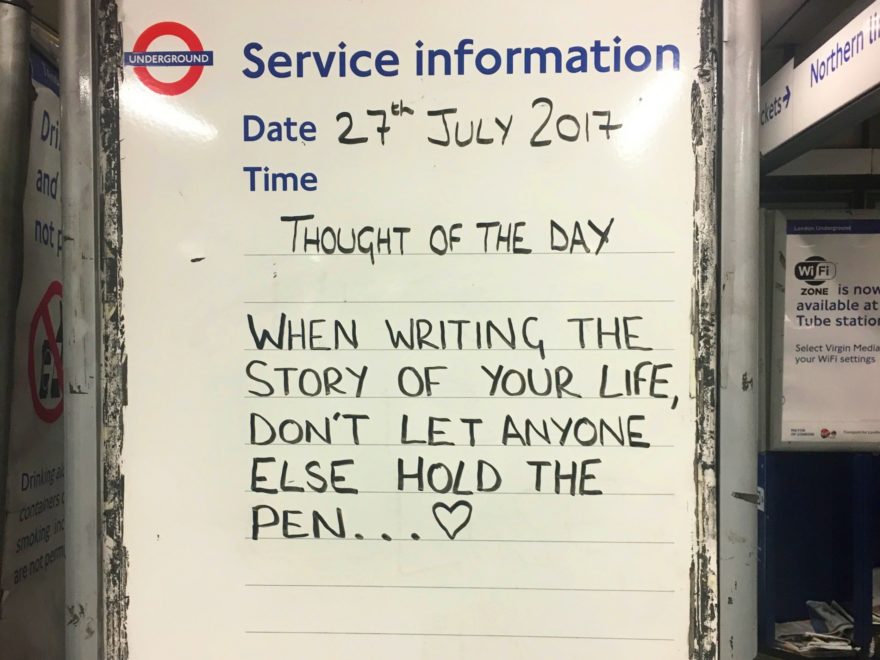 UNDERGROUND
Service information
Date 27th JULY 2017
Time
THOUGHT OF THE DAY
WHEN WRITING THE
STORY OF YOUR LIFE,
DON'T LET ANYONE
ELSE HOLD THE
PEN...♡
Dri
and
not p
Drinking a
containers o
smoking inc
are not perm
Northern li
ckets→
London Underground
WiFi
ZONE is now
available at
Tube station
Select Virgin Media
your WiFi settings
MAYOR
OF LONDON